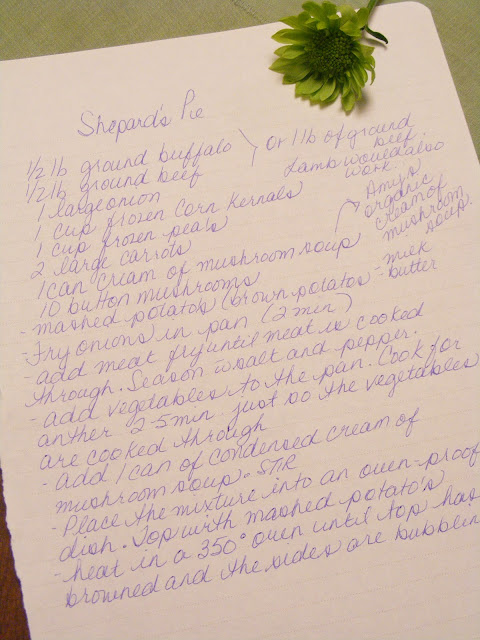 Shepard's Pie
1/2 lb ground buffalo
1/2 lb ground beef
or 1 lb of ground
beef.
Lamb would also
work.
1 large onion
1 cup frozen corn kernals
1 cup frozen peas
2 large carrots
1 can cream of mushroom soup
Amys
organic
cream of
mushroom
soup.
10 button mushrooms
- mashed potato's (brown potatos - milk
- butter
- Fry onions in pan (2 min)
- add meat fry until meat is cooked
through. Season w salt and pepper.
- add vegetables to the pan. Cook for
anther 2-5 min. just so the vegetables
are cooked through
- add 1 can of condensed cream of
mushroom soup - STIR
- Place the mixture into an oven-proof
dish. Top with mashed potato's
- heat in a 350° oven until top has
browned and the sides are bubblin